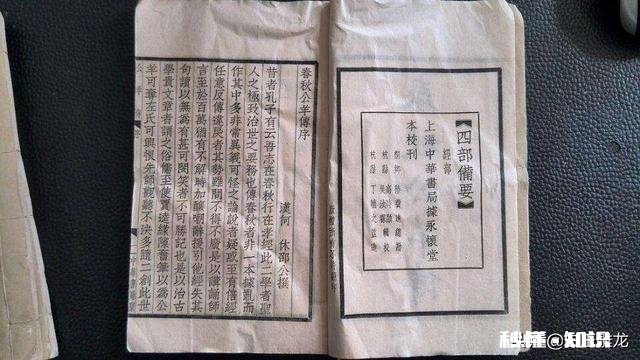 【四部備要】
經部
上海中華書局據永懷堂
本校刊
桐鄉 陸費逵 總勘
杭縣 高時顯 輯校
杭縣 吳汝霖 輯校
杭縣 丁輔之 監造
春秋公羊傳序
漢何 休邵公撰
昔者孔子有云吾志在春秋行在孝經此二學者聖
人之極致治世之要務也傳春秋者非一本據亂而
作其中多非常異義可怪之論說者疑惑至有倍經
任意反傳違戾者其勢雖問不得不廣是以講誦師
言至於百萬猶有不解時加釀嘲辭援引他經失其
句讀以無為有甚可閔笑者不可勝記也是以治古
學貴文章者謂之俗儒至使賈逵緣隙奮筆以為公
羊可奪左氏可興恨先師觀聽不決多隨二創此世
秒懂知识
龙